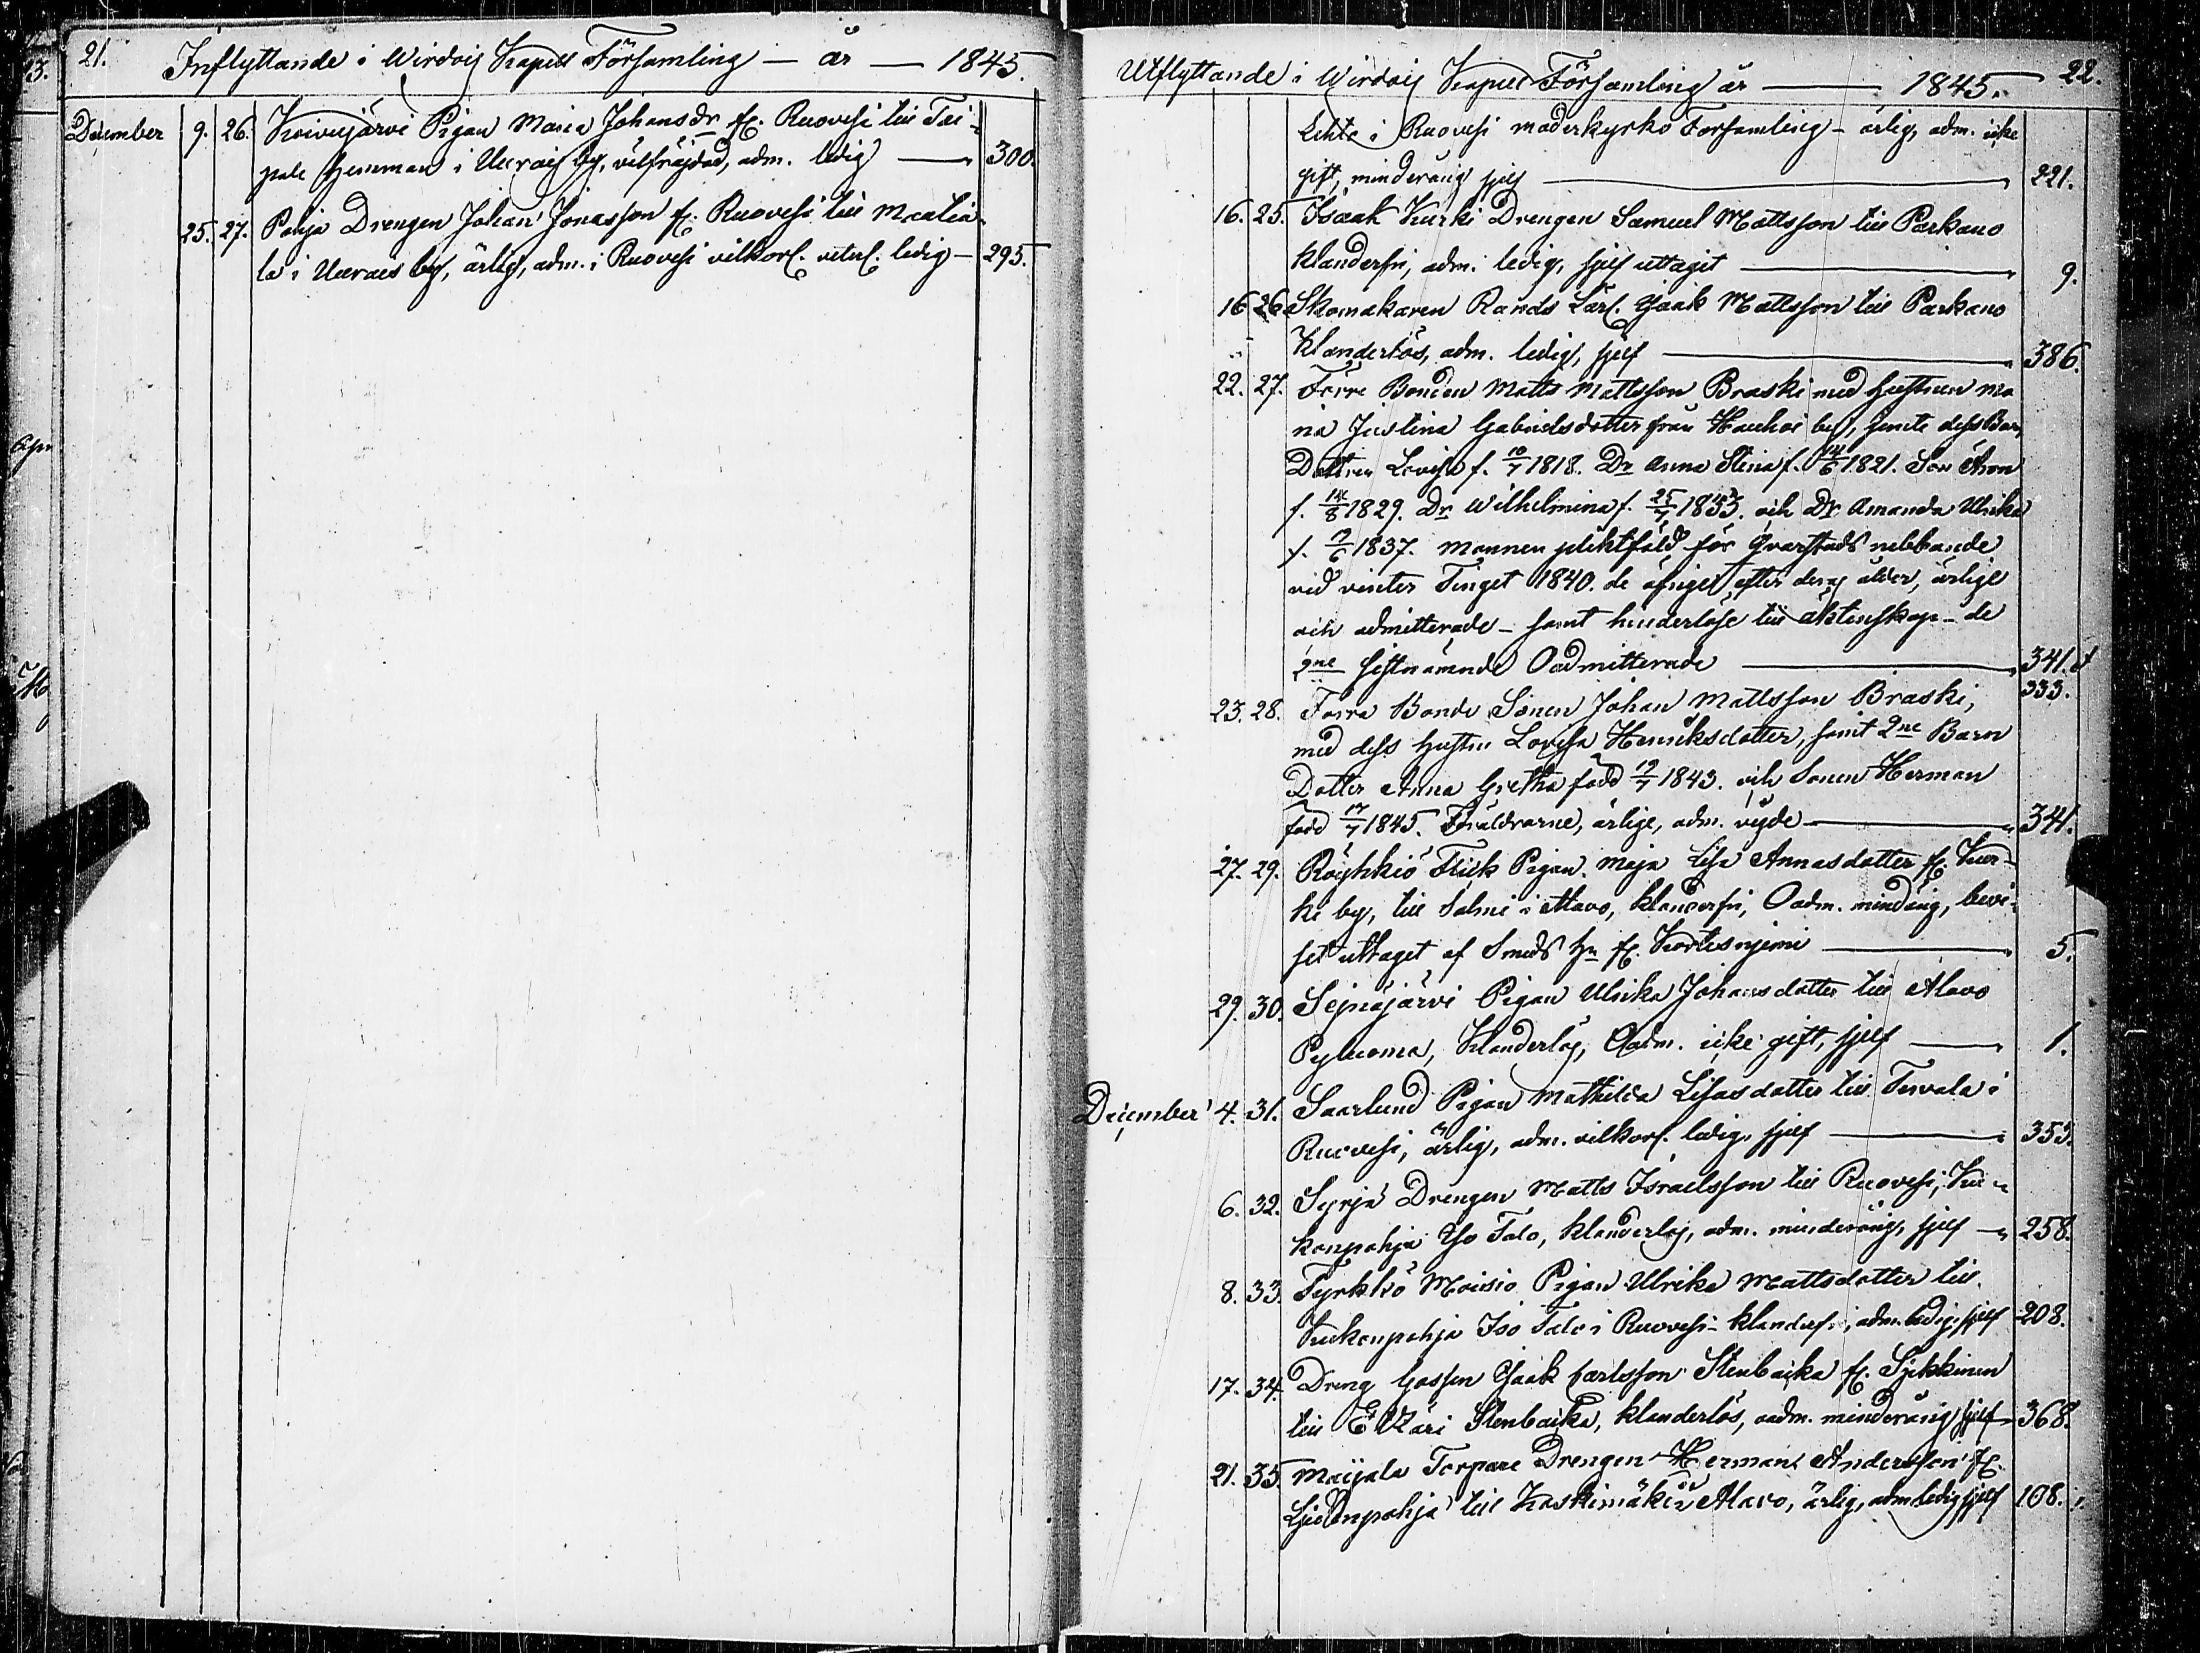 21. Inflyttande i Wirdois Kapell Församling — år — 1845.
December 9. 26. Koivujärvi Pigan Maria Johansdr fr. Ruovesi till Tai-
pale Hemman i by, välfräjdad, adm. ledig — 300.
25. 27. Pohja Drengen Johan Jonasson fr. Ruovesi till Maatia-
la i by, ärlig, adm. i Ruovesi vilkorl. ledig — 295.
Utflyttande i Wirdois Kapell Församling år — 1845. 22.
Lehto i Ruovesi moderkyrko Församling — ärlig, adm. icke
gift, minderårig sjelf — 221.
16. 25. Isaak Kurki Drengen Samuel Mattsson till Parkano
klanderfri, adm. ledig, sjelf uttaget — 9.
16 26 Skomakaren Rands Lärl. Isaak Mattsson till Parkano
Klanderlös, adm. ledig, sjelf — 386.
22. 27. Förre Bonden Matts Mattsson Braski med hustrun Ma
ria Justina Gabrielsdotter från Hauhoi by, jemte dess Barn
Dottren Lovisa f. 10/7 1818. Dr Anna Stina f. 14/6 1821. Son Aron
f. 14/8 1829. Dr Wilhelmina f. 25/7 1833. och Dr Amanda Ulrika
f. 7/6 1837. Mannen pliktfäld för qvarstads
vid vinter Tinget 1840. de öfriga efter deras ålder, ärlige
och admitterade — samt hinderlöse till äktenskap — de
2ne sistnämnde Oadmitterade — 341. &
333.
23. 28. Förra Bonde Sonen Johan Mattsson Braski,
med dess hustru Lovisa Henriksdotter, samt 2ne Barn
Dotter Anna Gretha född 19/7 1843. och Sonen Herman
född 17/7 1845. Föräldrarne, ärlige, adm. vigde — 341.
27. 29. Röyhkiö Flick Pigan Maja Lisa Annasdotter fr. Kur-
ki by, till Salmi i Alavo, klanderfri, Oadm. minderårig, bevi-
set uttaget af Smeds Hn fr. Kortesniemi — 5.
29. 30. Seinäjärvi Pigan Ulrika Johansdotter till Alavo
Klanderlös, Oadm. icke gift, sjelf — 1.
December 4. 31. Saarlund Pigan Mathilda Lisasdotter till Tervala i
Ruovesi, ärlig, adm. vilkorl. ledig, sjelf — 353.
6. 32. Syrjä Drengen Matts Israelsson till Ruovesi, Kuu-
kanpohja Iso Talo, klanderlös, adm. minderårig, sjelf — 258.
8. 33. Tyrkkö Moisio Pigan Ulrika Mattsdotter till
Kukonpohja Iso Talo i Ruovesi — klanderf., adm. ledig, sjelf 208.
17. 34. Dreng Gossen Isaak Carlsson Stenbacka fr. Sjekkinen
till Etzäri Stenbacka, klanderlös, oadm. minderårig sjelf — 368.
21. 35. Maijala Torpare Drengen Herman Andersson fr.
till Koskimäki i Alavo, ärlig, adm. ledig, sjelf 108.